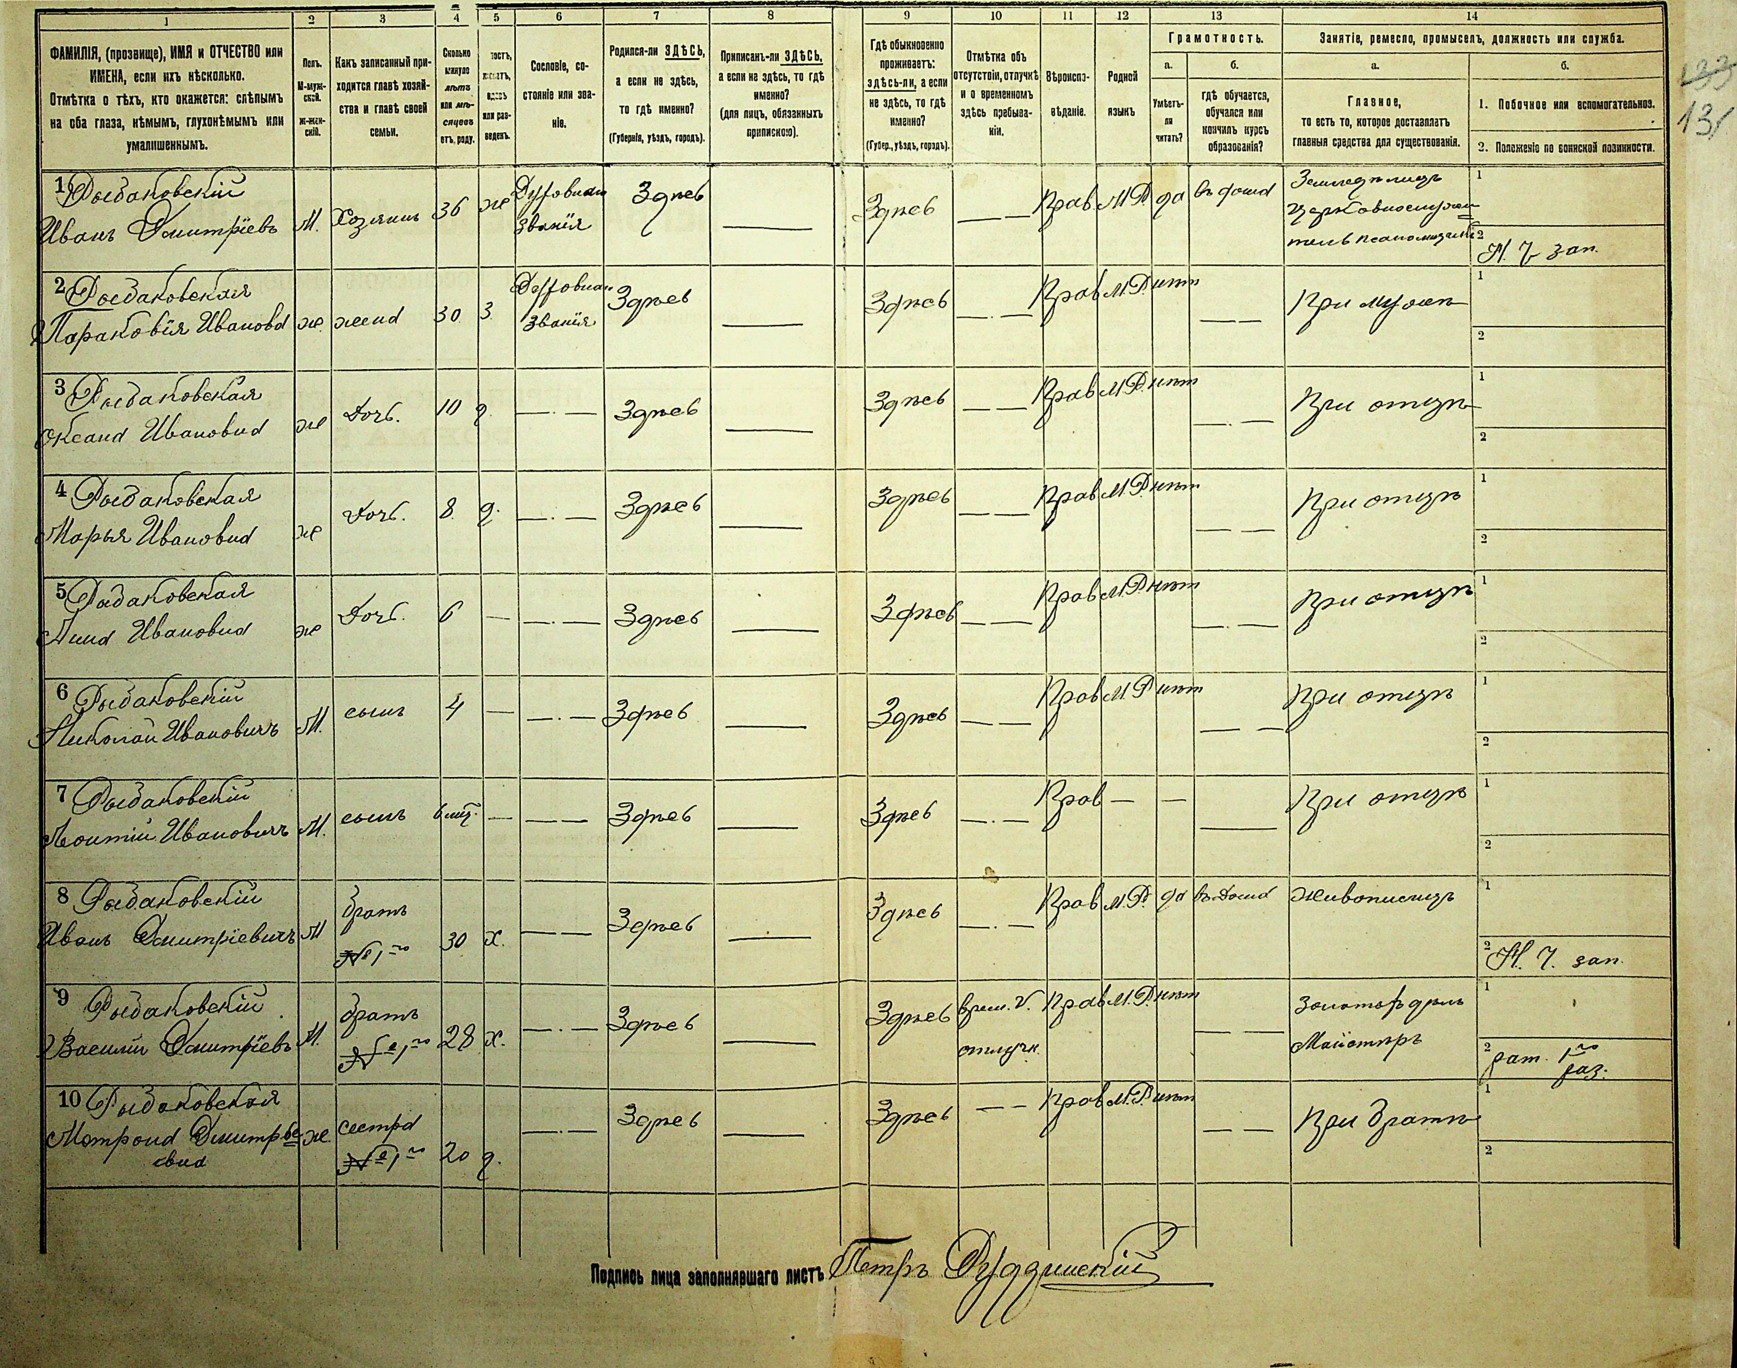 1 2 3 4 5 6 7 8 9 10 11 12 13 14
ФАМИЛІЯ, (прозвище), ИМЯ и ОТЧЕСТВО или
ИМЕНА, если ихъ нѣсколько.
Отмѣтка о тѣхъ, кто окажется: слѣпымъ
на оба глаза, нѣмымъ, глухонѣмымъ или
умалишеннымъ.
Полъ.
М-муж-
ской.
ж-жен-
скій.
Какъ записанный при-
ходится главѣ хозяй-
ства и главѣ своей
семьи.
Сколько
минуло
лѣтъ
или мѣ-
сяцевъ
отъ роду.
или раз-
веденъ.
Сословіе, со-
стояніе или зва-
ніе.
Родился-ли ЗДѢСЬ,
а если не здѣсь,
то гдѣ именно?
(Губернія, уѣздъ, городъ).
Приписанъ-ли ЗДѢСЬ,
а если не здѣсь, то гдѣ
именно?
(для лицъ, обязанныхъ
припискою).
Гдѣ обыкновенно
проживаетъ:
здѣсь-ли, а если
не здѣсь, то гдѣ
именно?
(Губер., уѣздъ, городъ).
Отмѣтка объ
отсутствіи, отлучкѣ
и о временномъ
здѣсь пребыва-
ніи.
Вѣроиспо-
вѣданіе.
Родной
языкъ
Грамотность.
а.
Умѣетъ-
ли
читать?
б.
гдѣ обучается,
обучался или
кончилъ курсъ
образованія?
Занятіе, ремесло, промыселъ, должность или служба.
а.
Главное,
то есть то, которое доставляетъ
главныя средства для существованія.
б.
1. Побочное или вспомогательное.
2. Положеніе по воинской повинности.
133
131
1 Рыбаковскій
Иванъ Дмитріевъ М. Хозяинъ 36 же Духовнаго званія Здѣсь — Здѣсь — — Прав М.Р. да въ дома Земледѣлецъ
1
2 Н. Ч зап.
2 Рыбаковская
Парасковія Иванова же жена 30 З. званія Здѣсь — Здѣсь —.— Прав М.Р. нѣт — — При мужѣ
1
2
3 Рыбаковская
Оксана Ивановна же Дочь. 10 д. —.— Здѣсь — Здѣсь — — Прав М.Р. нѣт —.— При отцѣ
1
2
4 Рыбаковская
Марья Ивановна же Дочь. 8. д. —.— Здѣсь — Здѣсь — — Прав М.Р. нѣт — — При отцѣ
1
2
5 Рыбаковская
Анна Ивановна же Дочь. 6 — —.— Здѣсь — Здѣсь — — Прав М.Р. нѣт —.— При отцѣ
1
2
6 Рыбаковскій
Николай Ивановичъ М. сынъ 4 — —.— Здѣсь — Здѣсь — — Прав М.Р. нѣт — — При отцѣ
1
2
7 Рыбаковскій
Леонтій Ивановичъ М. сынъ — — — Здѣсь — Здѣсь —.— Прав — — — При отцѣ
1
2
8 Рыбаковскій
Иванъ Дмитріевичъ М братъ № 1го 30 х. — — Здѣсь — Здѣсь —.— Прав М.Р. да въ дома Живописецъ
1
2 Н. Ч. зап.
9 Рыбаковскій
Василій Дмитріевъ М. братъ № 1го 28 х. —.— Здѣсь — Здѣсь врем. отлуч. Прав М.Р. нѣт — —
1
2 рат. 1го раз.
10 Рыбаковская
Матрона Дмитріе
вна же. сестра № 1го 20 д. —.— Здѣсь — Здѣсь — — Прав М.Р. нѣт — — При братѣ
1
2
Подпись лица заполнявшаго листъ Петръ